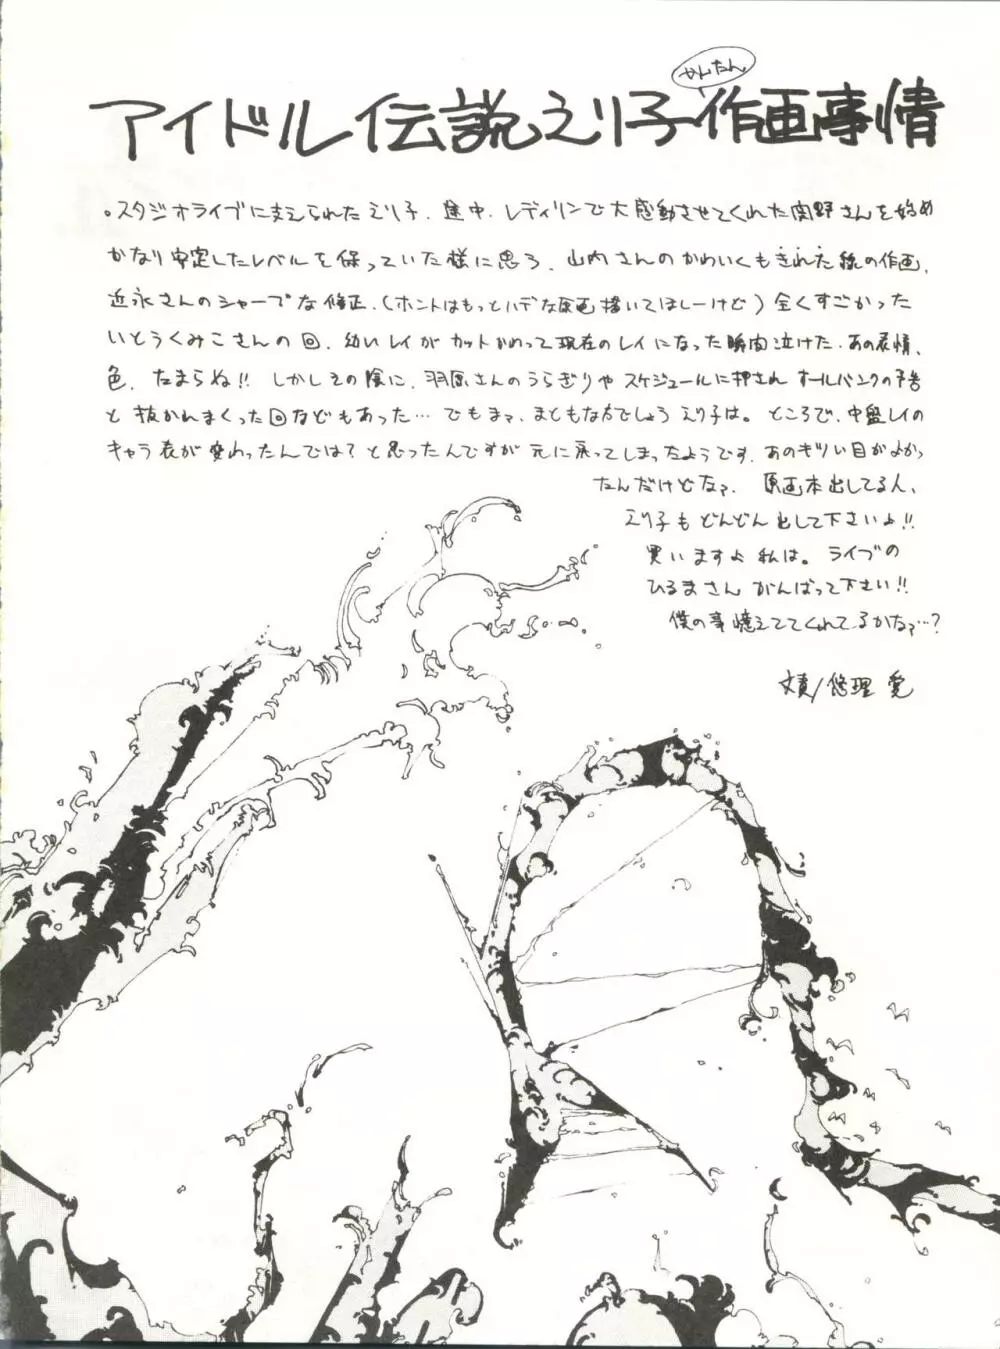 かんたん
アイドル伝説えり子作画事情
。スタジオライブに支えられたえり子.途中.レディリンで大感動させてくれた関野さんを始め
かなり安定したレベルを保っていた様に思う.山内さんのかわいくもきれた線の作画.
近永さんのシャープな修正.(ホントはもっとハデな原画描いてほしーけど)全くすごかった
いとうくみこさんの回.幼いレイがカットかわって現在のレイになった瞬間泣けた.あの表情.
色.たまらね!!しかしその陰に.羽原さんのうらぎりやスケジュールに押されオールバンクの予告
と抜かれまくった回などもあった…でもまァ.まともな方でしょうえり子は。ところで.中盤レイの
キャラ表が変わったんでは?と思ったんですが元に戻ってしまったようです.あのギリい目がよかっ
たんだけどなァ.原画本出してる人、
えり子もどんどん出して下さいよ!!
買いますよ私は。ライブの
ひるまさんがんばって下さい!!
僕の事憶えててくれてるかなァ…?
文責/悠理愛